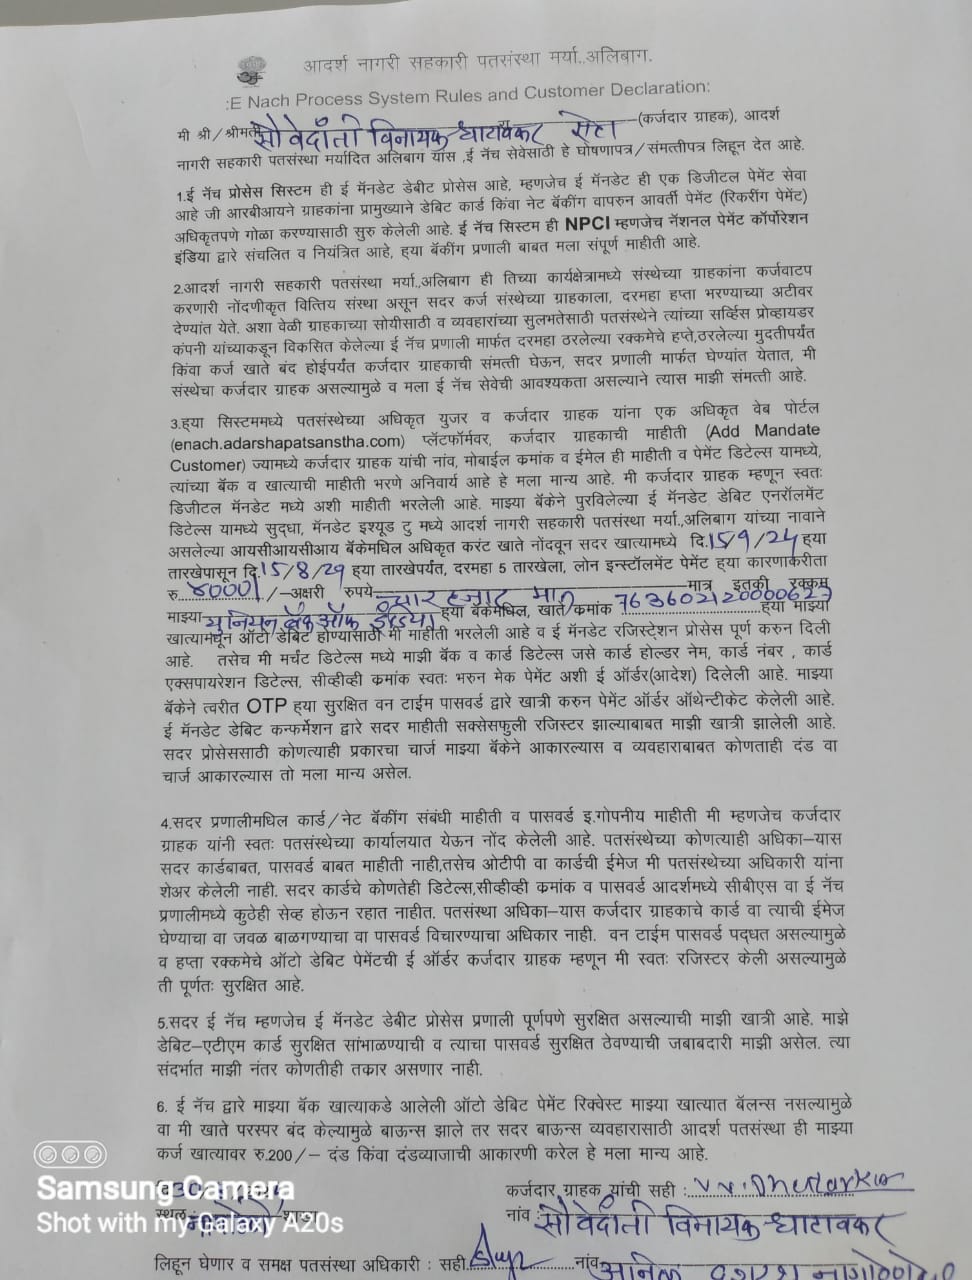 आदर्श नागरी सहकारी पतसंस्था मर्या.,अलिबाग.
:E Nach Process System Rules and Customer Declaration:
मी श्री/श्रीमती सौ वेदांती विनायक घाटावकर (कर्जदार ग्राहक), आदर्श
नागरी सहकारी पतसंस्था मर्यादित अलिबाग यांस ,ई नॅच सेवेसाठी हे घोषणापत्र/संमत्तीपत्र लिहून देत आहे.
1.ई नॅच प्रोसेस सिस्टम ही ई मॅनडेट डेबीट प्रोसेस आहे, म्हणजेच ई मॅनडेट ही एक डिजिटल पेमेंट सेवा
आहे जी आरबीआयने ग्राहकांना प्रामुख्याने डेबिट कार्ड किंवा नेट बॅकींग वापरुन आवर्ती पेमेंट (रिकरींग पेमेंट)
अधिकृतपणे गोळा करण्यासाठी सुरु केलेली आहे. ई नॅच सिस्टम ही NPCI म्हणजेच नॅशनल पेमेंट कॉर्पोरेशन
इंडिया द्वारे संचलित व नियंत्रित आहे, ह्या बॅकींग प्रणाली बाबत मला संपूर्ण माहीती आहे.
2.आदर्श नागरी सहकारी पतसंस्था मर्या.,अलिबाग ही तिच्या कार्यक्षेत्रामध्ये संस्थेच्या ग्राहकांना कर्जवाटप
करणारी नोंदणीकृत वित्तिय संस्था असून सदर कर्ज संस्थेच्या ग्राहकाला, दरमहा हप्ता भरण्याच्या अटीवर
देण्यांत येते. अशा वेळी ग्राहकाच्या सोयीसाठी व व्यवहारांच्या सुलभतेसाठी पतसंस्थेने त्यांच्या सर्व्हिस प्रोव्हायडर
कंपनी यांच्याकडून विकसित केलेल्या ई नॅच प्रणाली मार्फत दरमहा ठरलेल्या रक्कमेचे हप्ते,ठरलेल्या मुदतीपर्यंत
किंवा कर्ज खाते बंद होईपर्यंत कर्जदार ग्राहकाची संमत्ती घेऊन, सदर प्रणाली मार्फत घेण्यांत येतात, मी
संस्थेचा कर्जदार ग्राहक असल्यामुळे व मला ई नॅच सेवेची आवश्यकता असल्याने त्यास माझी संमत्ती आहे.
3.ह्या सिस्टममध्ये पतसंस्थेच्या अधिकृत युजर व कर्जदार ग्राहक यांना एक अधिकृत वेब पोर्टल
(enach.adarshapatsanstha.com) प्लॅटफॉर्मवर, कर्जदार ग्राहकाची माहीती (Add Mandate
Customer) ज्यामध्ये कर्जदार ग्राहक यांची नांव, मोबाईल क्रमांक व ईमेल ही माहीती व पेमेंट डिटेल्स यामध्ये,
त्यांच्या बॅक व खात्याची माहीती भरणे अनिवार्य आहे हे मला मान्य आहे. मी कर्जदार ग्राहक म्हणून स्वतः
डिजीटल मॅनडेट मध्ये अशी माहीती भरलेली आहे. माझ्या बॅकेने पुरविलेल्या ई मॅनडेट डेबिट एनरॉलमेंट
डिटेल्स यामध्ये सुद्धा, मॅनडेट इश्यूड टु मध्ये आदर्श नागरी सहकारी पतसंस्था मर्या.,अलिबाग यांच्या नावाने
असलेल्या आयसीआयसीआय बॅकेमधिल अधिकृत करंट खाते नोंदवून सदर खात्यामध्ये दि.15/9/24 ह्या
तारखेपासून दि.15/8/29 ह्या तारखेपर्यंत, दरमहा 5 तारखेला, लोन इन्स्टॉलमेंट पेमेंट ह्या कारणाकरीता
रु. ४000/ /-अक्षरी रुपये चार हजार मात्र मात्र इतकी रक्कम
माझ्या युनियन बँक ऑफ इंडिया ह्या बॅकेमधिल, खाते क्रमांक 763602120000623 ह्या माझ्या
खात्यामधून ऑटो डेबिट होण्यासाठी मी माहीती भरलेली आहे व ई मॅनडेट रजिस्ट्रेशन प्रोसेस पूर्ण करुन दिली
आहे. तसेच मी मर्चंट डिटेल्स मध्ये माझी बॅक व कार्ड डिटेल्स जसे कार्ड होल्डर नेम, कार्ड नंबर , कार्ड
एक्सपायरेशन डिटेल्स, सीव्हीव्ही क्रमांक स्वतः भरुन मेक पेमेंट अशी ई ऑर्डर(आदेश) दिलेली आहे. माझ्या
बॅकेने त्वरीत OTP ह्या सुरक्षित वन टाईम पासवर्ड द्वारे खात्री करुन पेमेंट ऑर्डर ऑथेन्टीकेट केलेली आहे.
ई मॅनडेट डेबिट कन्फर्मेशन द्वारे सदर माहीती सक्सेसफुली रजिस्टर झाल्याबाबत माझी खात्री झालेली आहे.
सदर प्रोसेससाठी कोणत्याही प्रकारचा चार्ज माझ्या बॅकेने आकारल्यास व व्यवहाराबाबत कोणताही दंड वा
चार्ज आकारल्यास तो मला मान्य असेल.
4.सदर प्रणालीमधिल कार्ड/नेट बॅकींग संबंधी माहीती व पासवर्ड इ.गोपनीय माहीती मी म्हणजेच कर्जदार
ग्राहक यांनी स्वतः पतसंस्थेच्या कार्यालयात येऊन नोंद केलेली आहे. पतसंस्थेच्या कोणत्याही अधिका–यास
सदर कार्डबाबत, पासवर्ड बाबत माहीती नाही,तसेच ओटीपी वा कार्डची ईमेज मी पतसंस्थेच्या अधिकारी यांना
शेअर केलेली नाही. सदर कार्डचे कोणतेही डिटेल्स,सीव्हीव्ही क्रमांक व पासवर्ड आदर्शमध्ये सीबीएस वा ई नॅच
प्रणालीमध्ये कुठेही सेव्ह होऊन रहात नाहीत. पतसंस्था अधिका–यास कर्जदार ग्राहकाचे कार्ड वा त्याची ईमेज
घेण्याचा वा जवळ बाळगण्याचा वा पासवर्ड विचारण्याचा अधिकार नाही. वन टाईम पासवर्ड पद्धत असल्यामुळे
व हप्ता रक्कमेचे ऑटो डेबिट पेमेंटची ई ऑर्डर कर्जदार ग्राहक म्हणून मी स्वतः रजिस्टर केली असल्यामुळे
ती पूर्णतः सुरक्षित आहे.
5.सदर ई नॅच म्हणजेच ई मॅनडेट डेबीट प्रोसेस प्रणाली पूर्णपणे सुरक्षित असल्याची माझी खात्री आहे. माझे
डेबिट–एटीएम कार्ड सुरक्षित सांभाळण्याची व त्याचा पासवर्ड सुरक्षित ठेवण्याची जबाबदारी माझी असेल. त्या
संदर्भात माझी नंतर कोणतीही तक्रार असणार नाही.
6. ई नॅच द्वारे माझ्या बॅक खात्याकडे आलेली ऑटो डेबिट पेमेंट रिक्वेस्ट माझ्या खात्यात बॅलन्स नसल्यामुळे
वा मी खाते परस्पर बंद केल्यामुळे बाऊन्स झाले तर सदर बाऊन्स व्यवहारासाठी आदर्श पतसंस्था ही माझ्या
कर्ज खात्यावर रु.200/– दंड किंवा दंडव्याजाची आकारणी करेल हे मला मान्य आहे.
Samsung Camera
कर्जदार ग्राहक यांची सही :
Shot with my Galaxy A20s
स्थळ
नांव : सौ वेदांती विनायक घाटावकर
लिहून घेणार व समक्ष पतसंस्था अधिकारी : सही नांव